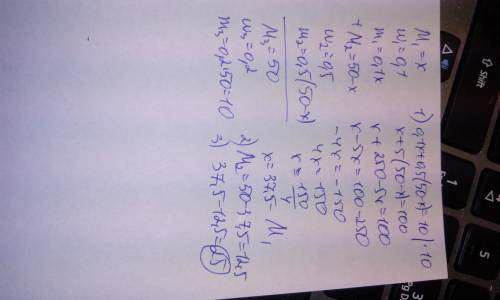 M₁ = x
w₁ = 0,1
m₁ = 0,1x
+ M₂ = 50-x
w₂ = 0,5
m₂ = 0,5(50-x)
M₃ = 50
w₃ = 0,2
m₃ = 0,2·50 = 10
1) 0,1x + 0,5(50-x) = 10 | ·10
x + 5(50-x) = 100
x + 250 - 5x = 100
x - 5x = 100 - 250
-4x = -150
4x = 150
x = 150/4
x = 37,5 - M₁
2) M₂ = 50 - 37,5 = 12,5
3) 37,5 - 12,5 = 25
Shift
5